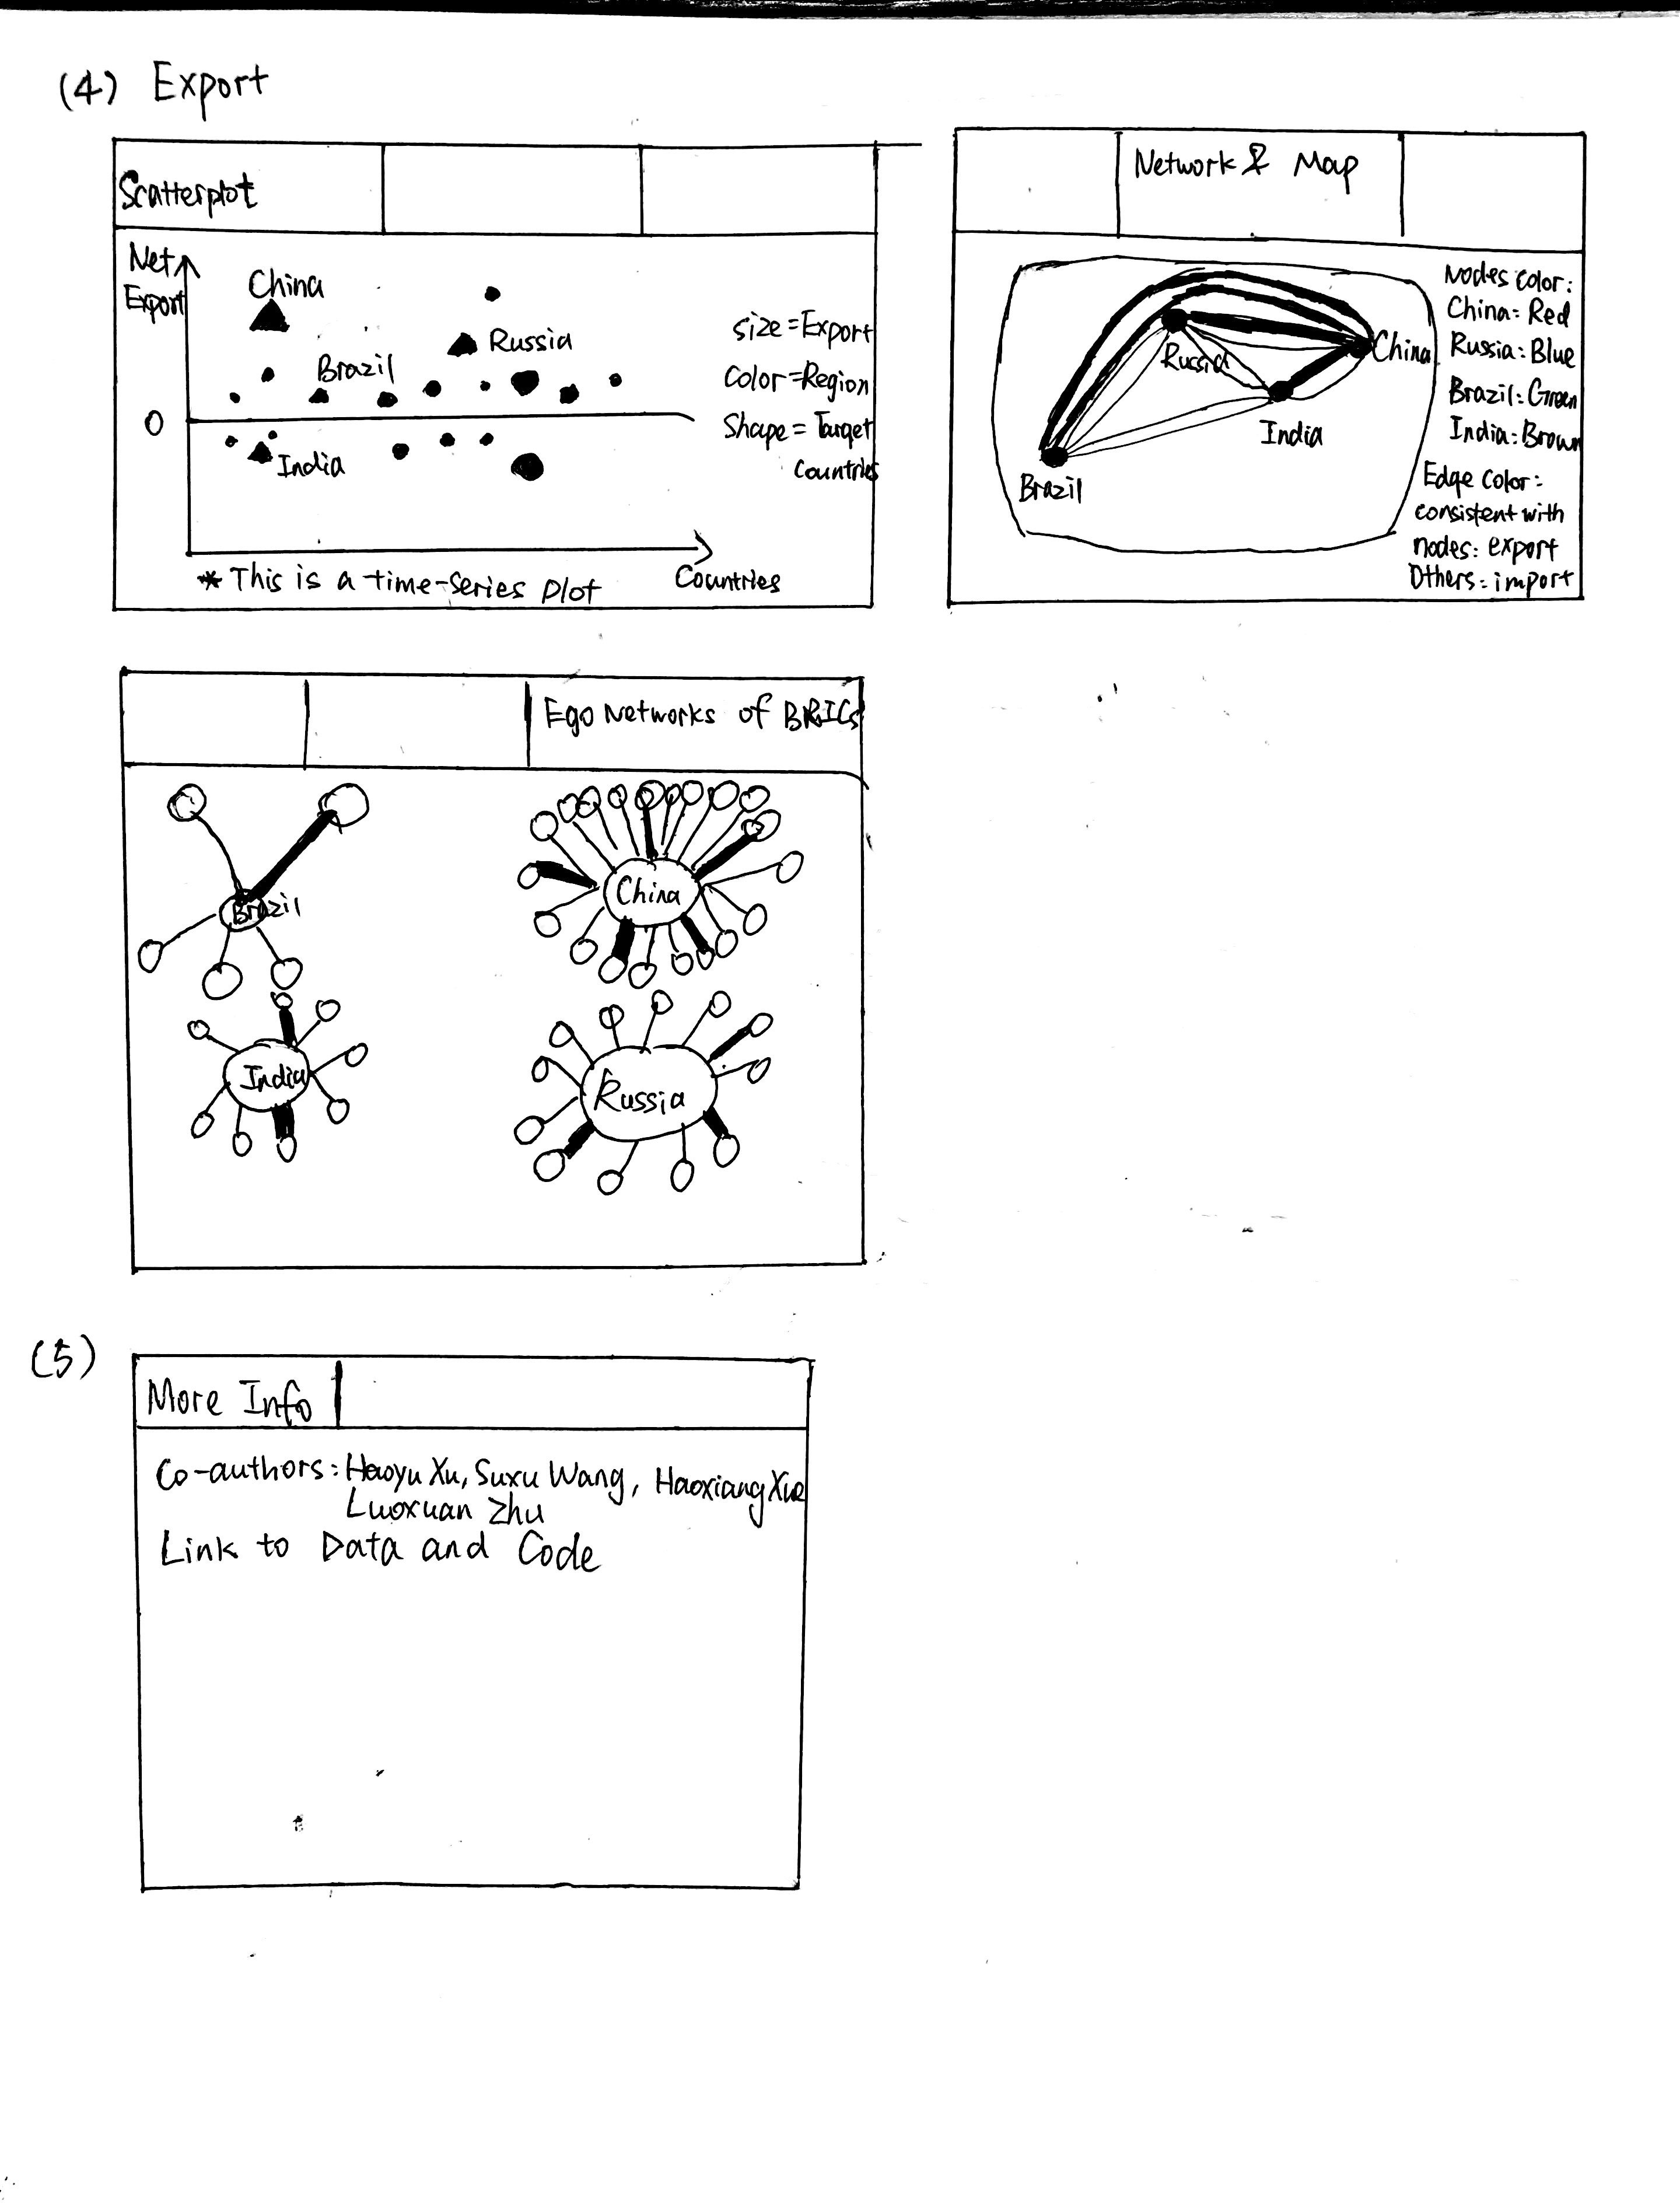 (4) Export
Scatterplot
Net
Export
China
Russia
Brazil
0
India
size=Export
Color=Region
Shape=Target
Countries
Countries
* This is a time-series plot
Network & Map
Russia
China
India
Brazil
Nodes color:
China: Red
Russia: Blue
Brazil: Green
India: Brown
Edge color:
consistent with
nodes: export
Others: import
Ego Networks of BRICs
Brazil
China
India
Russia
(5)
More Info
Co-authors: Haoyu Xu, Suxu Wang, Haoxiang Xue
Luoxuan Zhu
Link to Data and Code